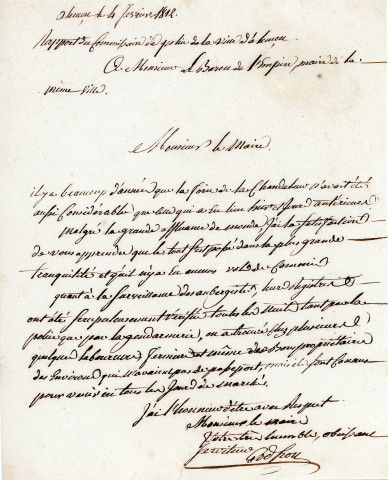 alençon le 4 fevrier 1812.
Rapport du Commissaire de police de la ville d'alençon
A Monsieur le Baron de l'Empire, maire de la
même ville.
Monsieur le Maire.
il y a beaucoup d'année que la foire de la Chandeleur n'avoit été
aussi Considérable que celle qui a eu lieu hier et jours antérieures
malgré la grande affluance de monde j'ai la satisfaction
de vous apprendre que le tout s'est passé dans la plus grande
tranquilité et qu'il n'y a eu aucuns vols de Commis
quant à la surveillance des aubergistes, leurs registres
ont été scrupuleusement vérifié toutes les nuits tant par la
police que par la gendarmerie, on a trouvé chez plusieurs
quelque laboureurs fermiers et même des propriétaire
des Environs qui n'avaient pas de passeport, mais ils sont Connus
pour venir en tous les Jours de marchés.
J'ai l'honneur d'être avec Respect
Monsieur le maire
Votre très humble, obeissant
serviteur